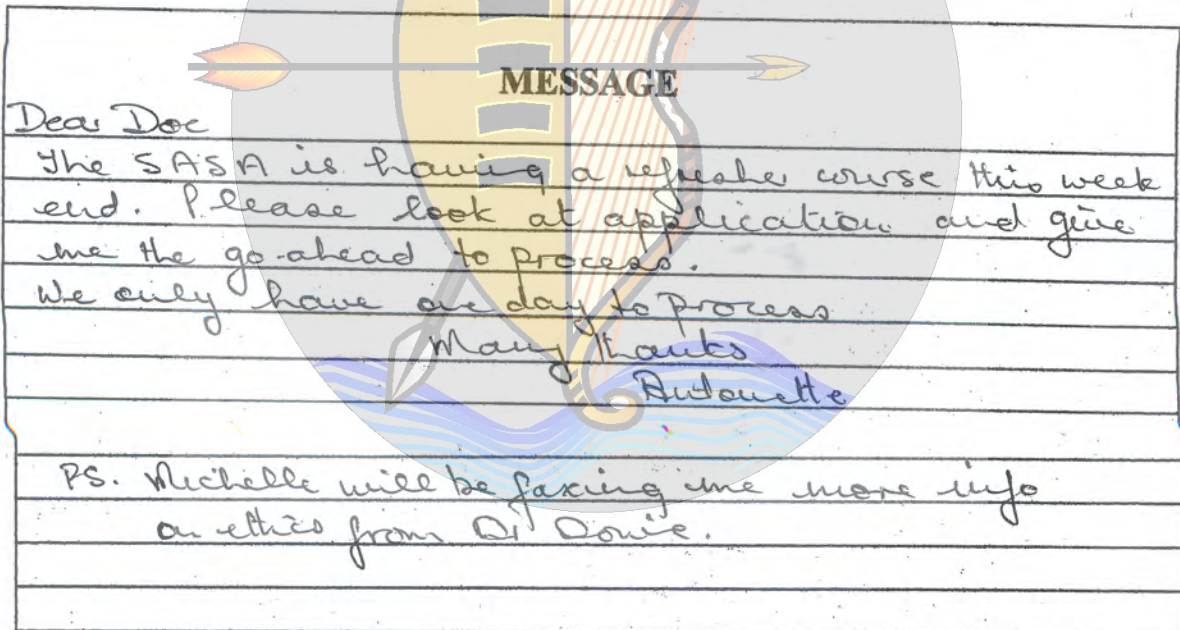 MESSAGE
Dear Doc
The SASA is having a refresher course this week
end. Please look at application and give
me the go-ahead to process.
We only have one day to process
Many thanks
Antonette
PS. Michelle will be faxing me more info
on ethics from Dr Dowie.